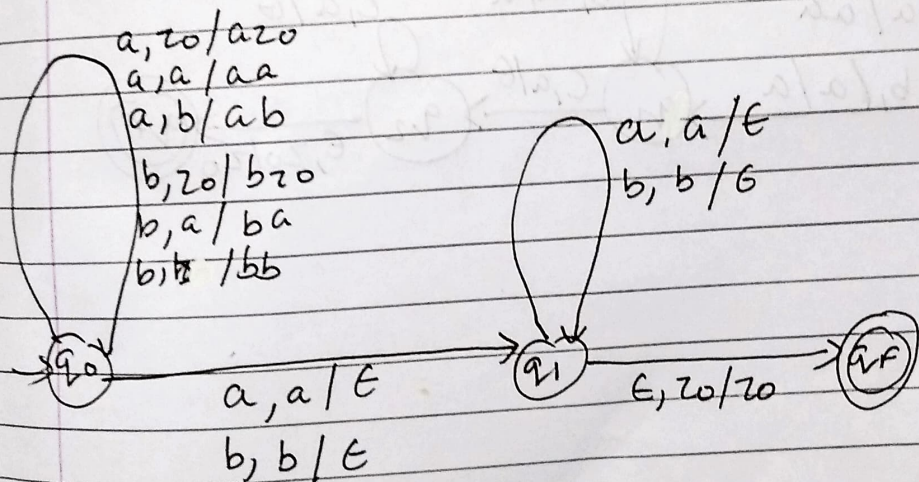 a, z0 / az0
a, a / aa
a, b / ab
b, z0 / bz0
b, a / ba
b, b / bb
a, a / ε
b, b / ε
q0
q1
qf
a, a / ε
b, b / ε
ε, z0 / z0